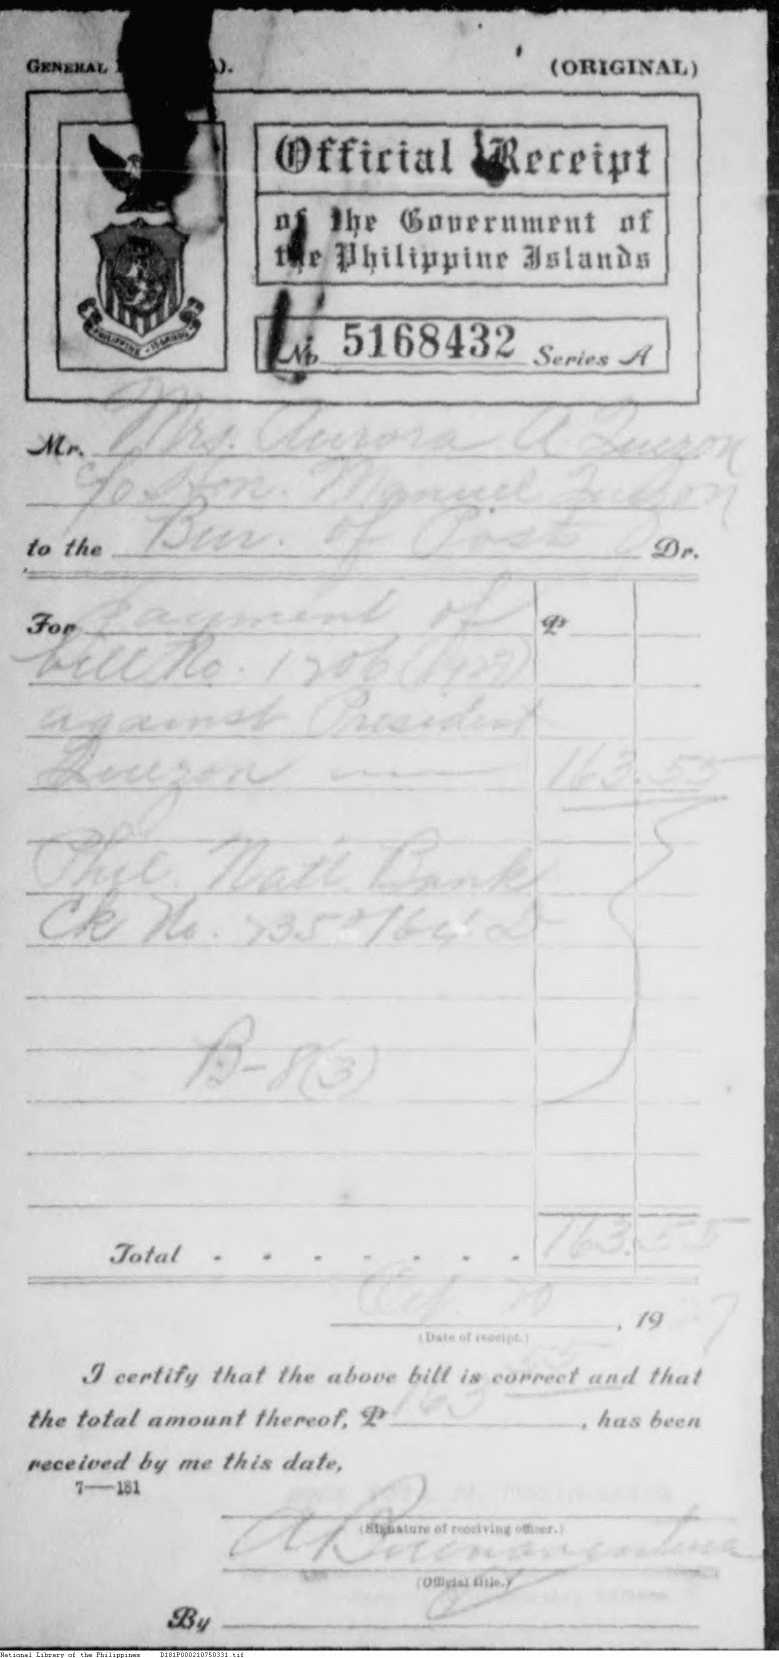 GENERAL A).
(ORIGINAL)
Official Receipt
of the Government of
the Philippine Islands
No 5168432 Series A
PHILIPPINE ISLANDS
Mr. Mrs. Aurora A Quezon
c/o Hon. Manuel Quezon
to the Bur. of Posts Dr.
For payment of ₱
bill No. 1206 (1927)
against President
Quezon 163.55
Phil. Natl. Bank
Ck No.
B-8(3)
Total . . . . . . . 163.55
Oct. 20, 1927
(Date of receipt.)
I certify that the above bill is correct and that
the total amount thereof, ₱ 163 55, has been
received by me this date,
7—181
(Signature of receiving officer.)
A Buenaventura
(Official title.)
By
National Library of the Philippines D181P000210750331.tif